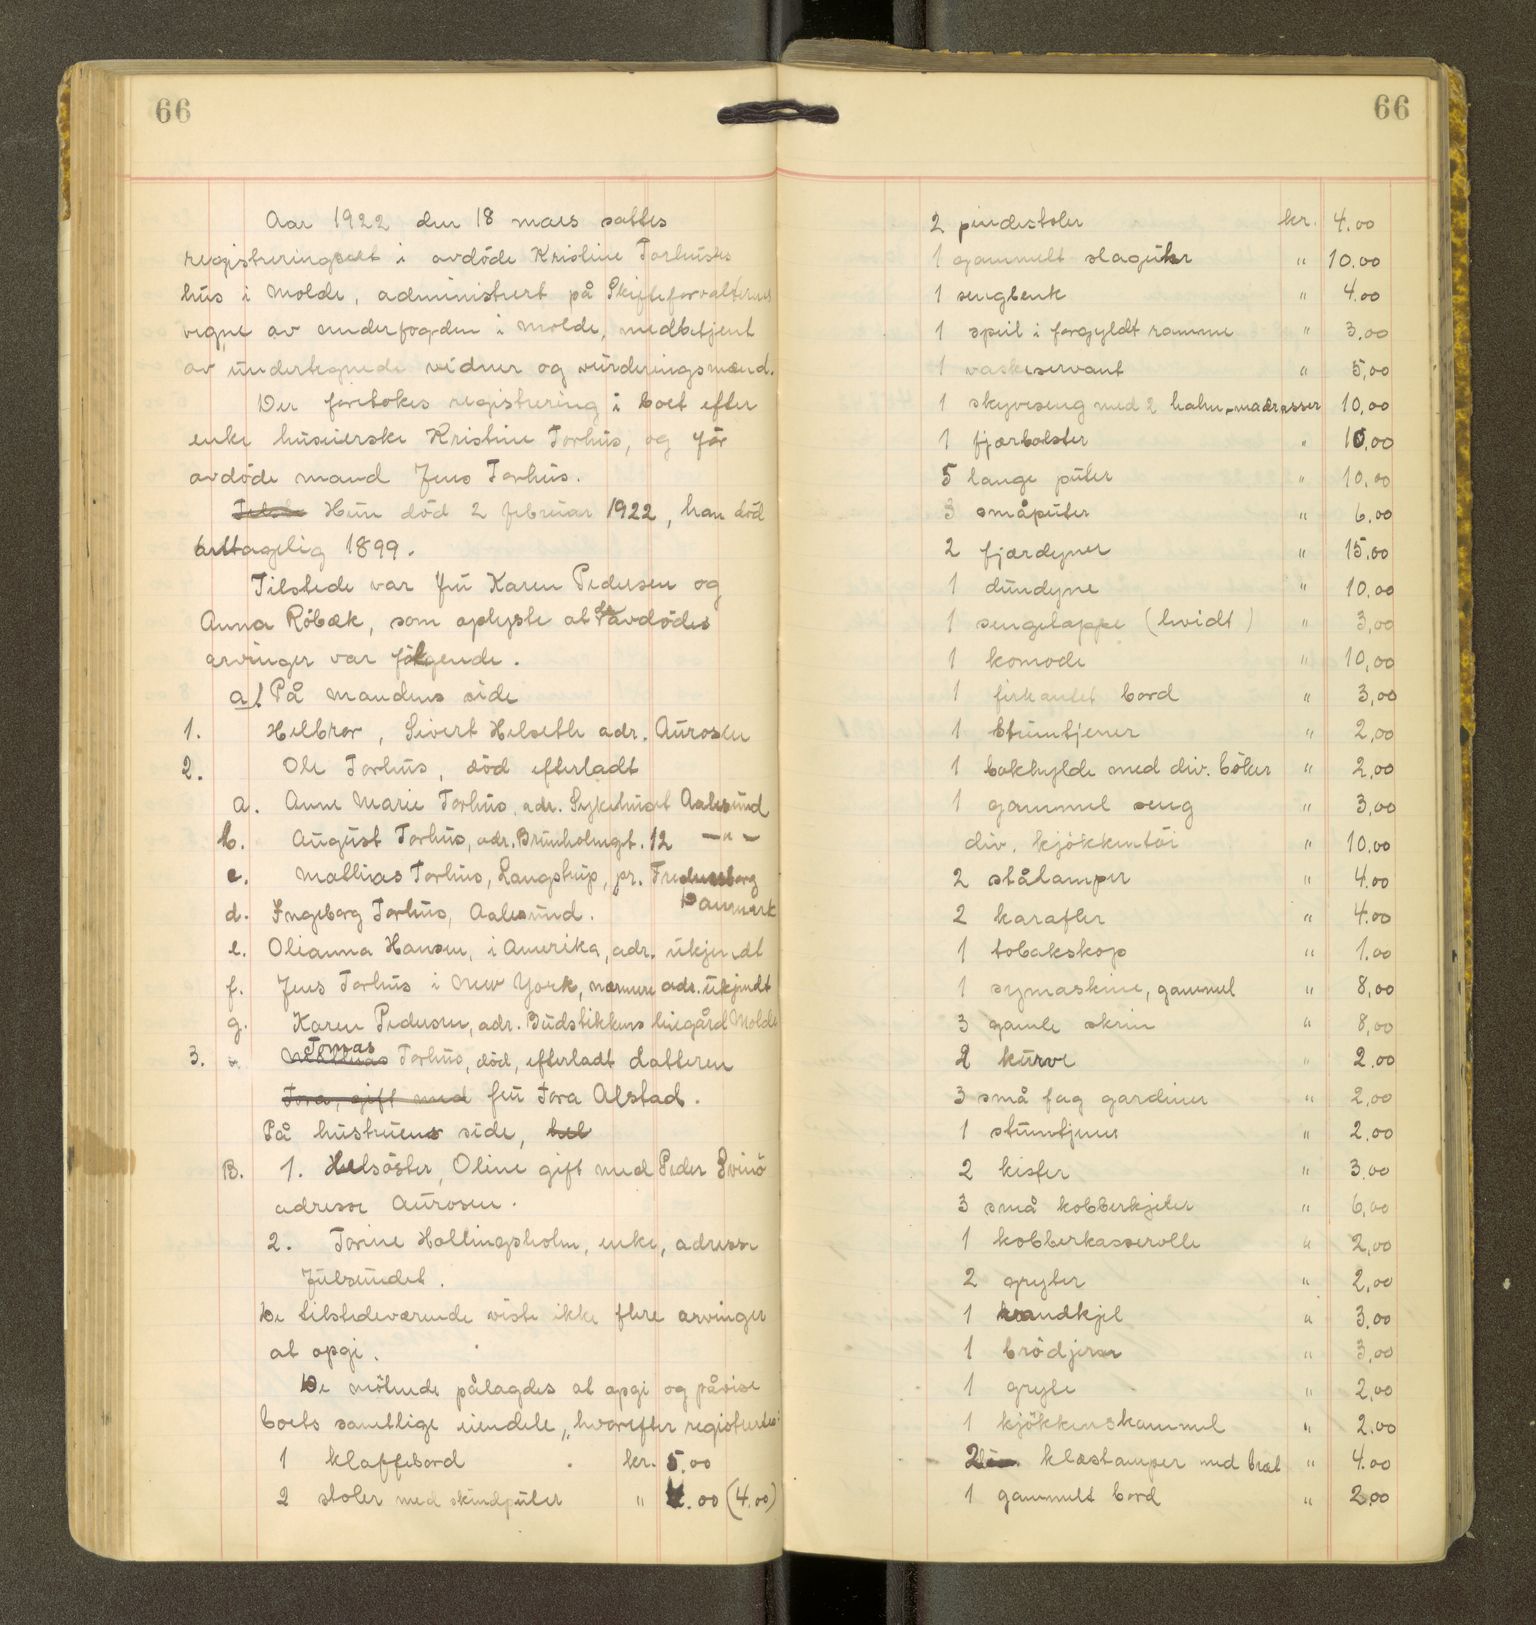 66
Aar 1922 den 18 mars sattes
registreringsret i avdöde Kristine Torhus's
hus i Molde, administrert på Skifteforvalterens
vegne av underfogden i Molde, medbetjent
av undertegnede vidner og vurderingsmænd.
Der foretokes registrering i boet efter
enke huseierske Kristine Torhus, og før
avdöde mand Jens Torhus.
Hun död 2 februar 1922, han död
antagelig 1899.
Tilstede var fru Karen Pedersen og
Anna Röbæk, som oplyste at avdödes
arvinger var fölgende.
a/. På mandens side
1. Helbror, Sivert Helseth adr. Aurosen
2. Ole Torhus, död efterladt
a. Anne Marie Torhus, adr. Sykehuset Aalesund
b. August Torhus, adr. Brunholmgt. 12 —"—
c. Mathias Torhus, Langstrup, pr. Fredensborg
Danmark
d. Ingeborg Torhus, Aalesund.
e. Olianna Hansen, i Amerika, adr. ukjendt
f. Jens Torhus i New York, nærmere adr. ukjendt
g. Karen Pedersen, adr. Budstikkens Molde
3. Tomas Torhus, död, efterladt datteren
Tora, gift med fru Tora Alstad.
På hustruens side, hel
B. 1. Helsöster, Oline gift med Peder Svinö
adresse Aurosen.
2. Torine Hollingsholm, enke, adresse
Julsundet.
De tilstedeværende viste ikke flere arvinger
at opgi.
De mötende pålagdes at opgi og påvise
boets samtlige eiendele, hvorefter registrertes:
1 klaffebord kr. 5.00
2 stoler med skindputer " 4.00 (4.00)
66
2 pindestoler kr. 4.00
1 gammelt slaguhr " 10.00
1 sengbenk " 4.00
1 speil i forgyldt ramme " 3.00
1 vaskeservant " 5,00
1 skyveseng med 2 halm-madrasser 10,00
1 fjærbolster " 10.00
5 lange puter " 10,00
3 småputer " 6,00
2 fjærdyner " 15.00
1 dundyne " 10.00
1 sengetæppe (hvidt) " 3,00
1 komode " 10,00
1 firkantet bord " 3,00
1 stumtjener " 2,00
1 bokhylde med div. böker " 2,00
1 gammel seng " 3,00
div. kjökkentöi " 10.00
2 stålamper " 4.00
2 karafler " 4.00
1 tobakskop " 1.00
1 symaskine, gammel " 8,00
3 gamle skrin " 8,00
2 kurve " 2.00
3 små fag gardiner " 2,00
1 stumtjener " 2.00
2 kister " 3.00
3 små kobberkjeler " 6,00
1 kobberkasserolle " 2,00
2 gryter " 2,00
1 vandkjel " 3.00
1 brödjern " 3,00
1 gryte " 2,00
1 kjökkenskammel " 2.00
2 klæstamper med bræt " 4.00
1 gammelt bord " 2.00